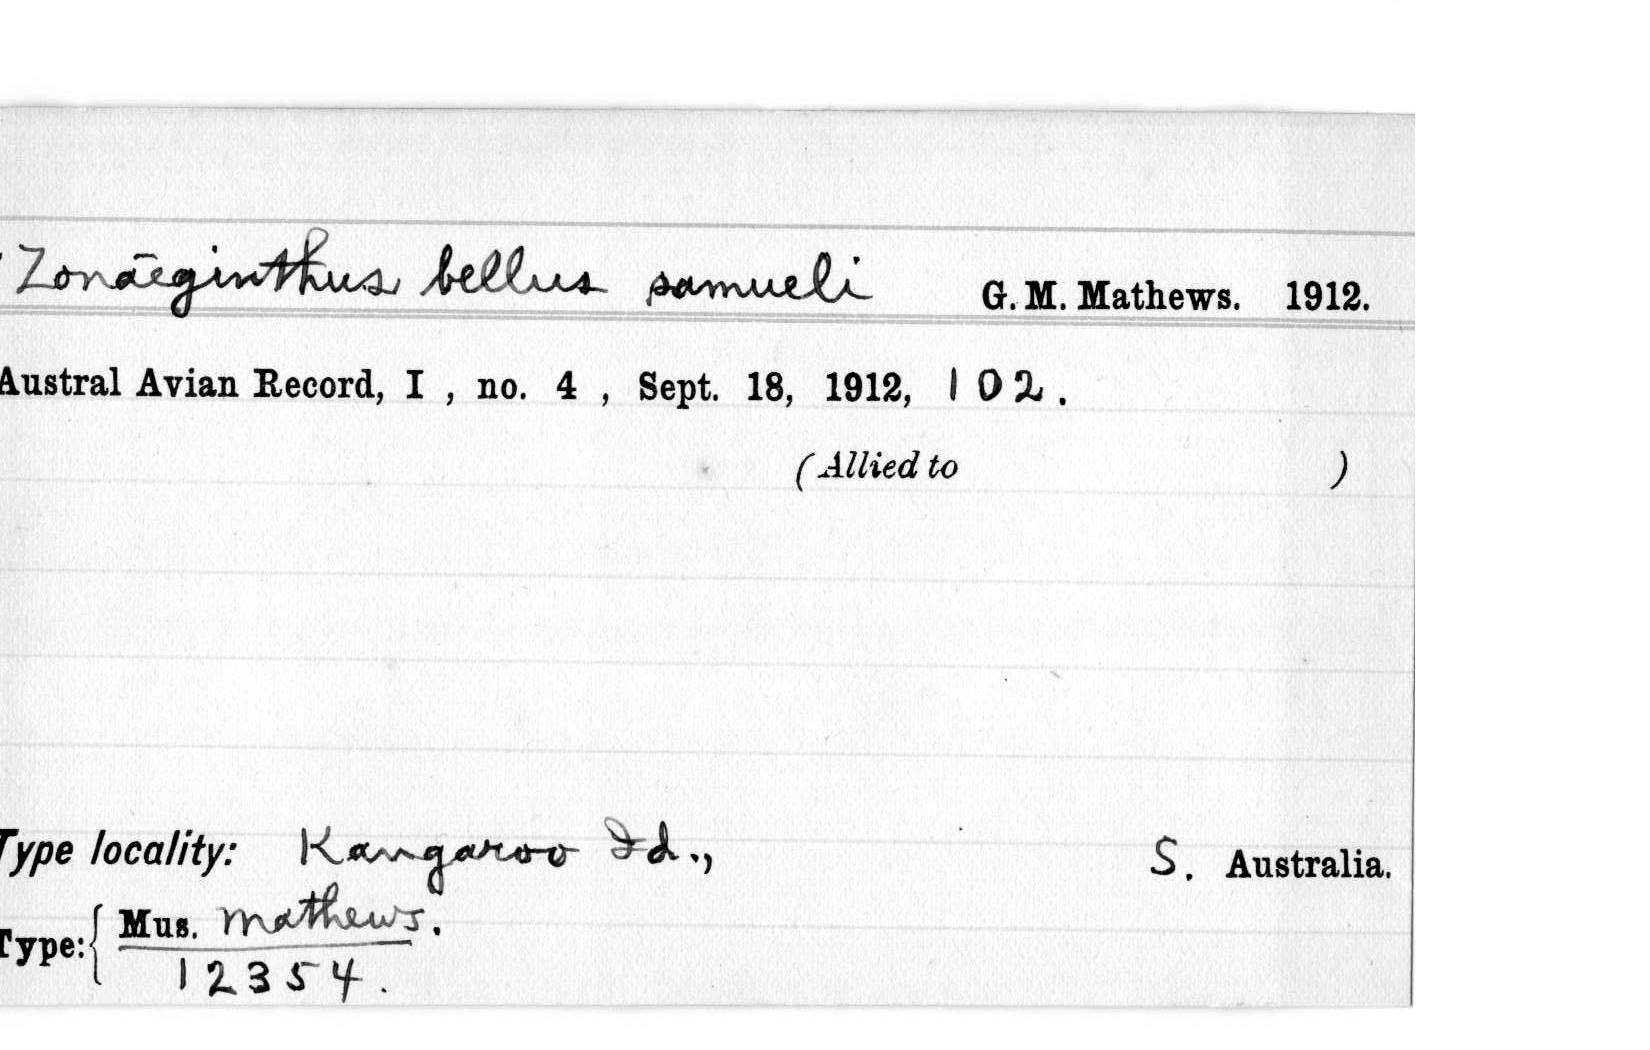 Zonaeginthus bellus samueli G. M. Mathews. 1912.
Austral Avian Record, I , no. 4 , Sept. 18, 1912, 102.
(Allied to )
Type locality: Kangaroo Id., S. Australia.
Type: { Mus. Mathews.
12354.